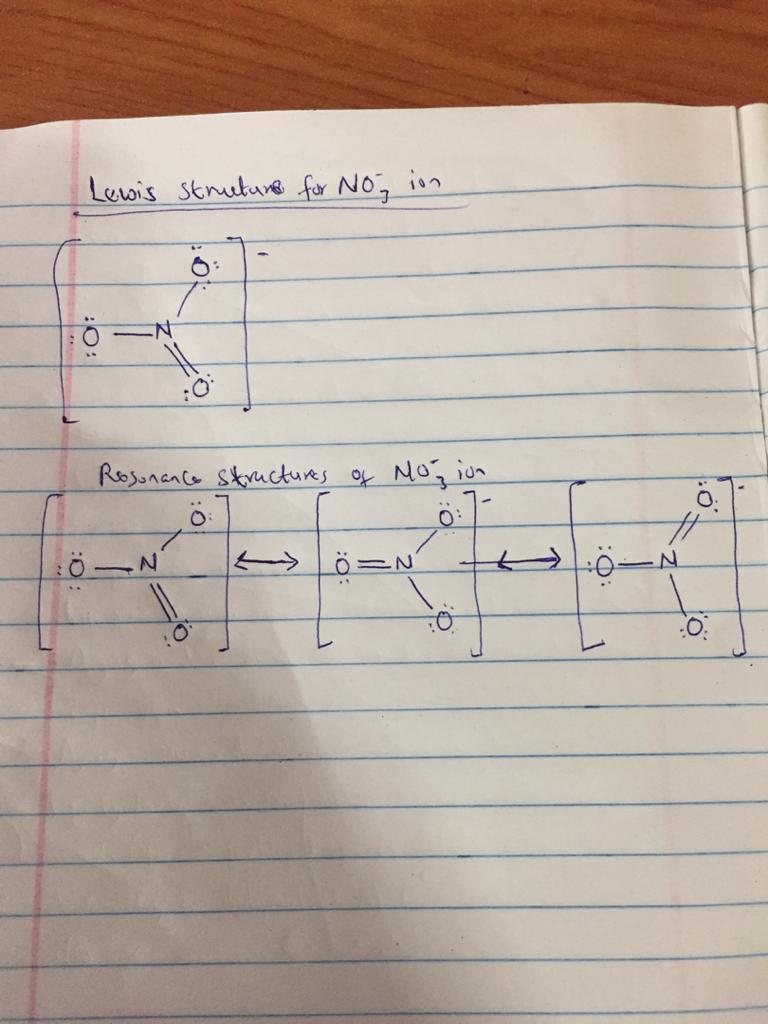 Lewis structure for NO₃⁻ ion
[:Ö—N(—Ö:)(=O:)]⁻
Resonance structures of NO₃⁻ ion
[:Ö—N(—Ö:)(=O:)] ⟷ [Ö=N(—Ö:)(—O:)]⁻ ⟷ [:Ö—N(=Ö:)(—O:)]⁻